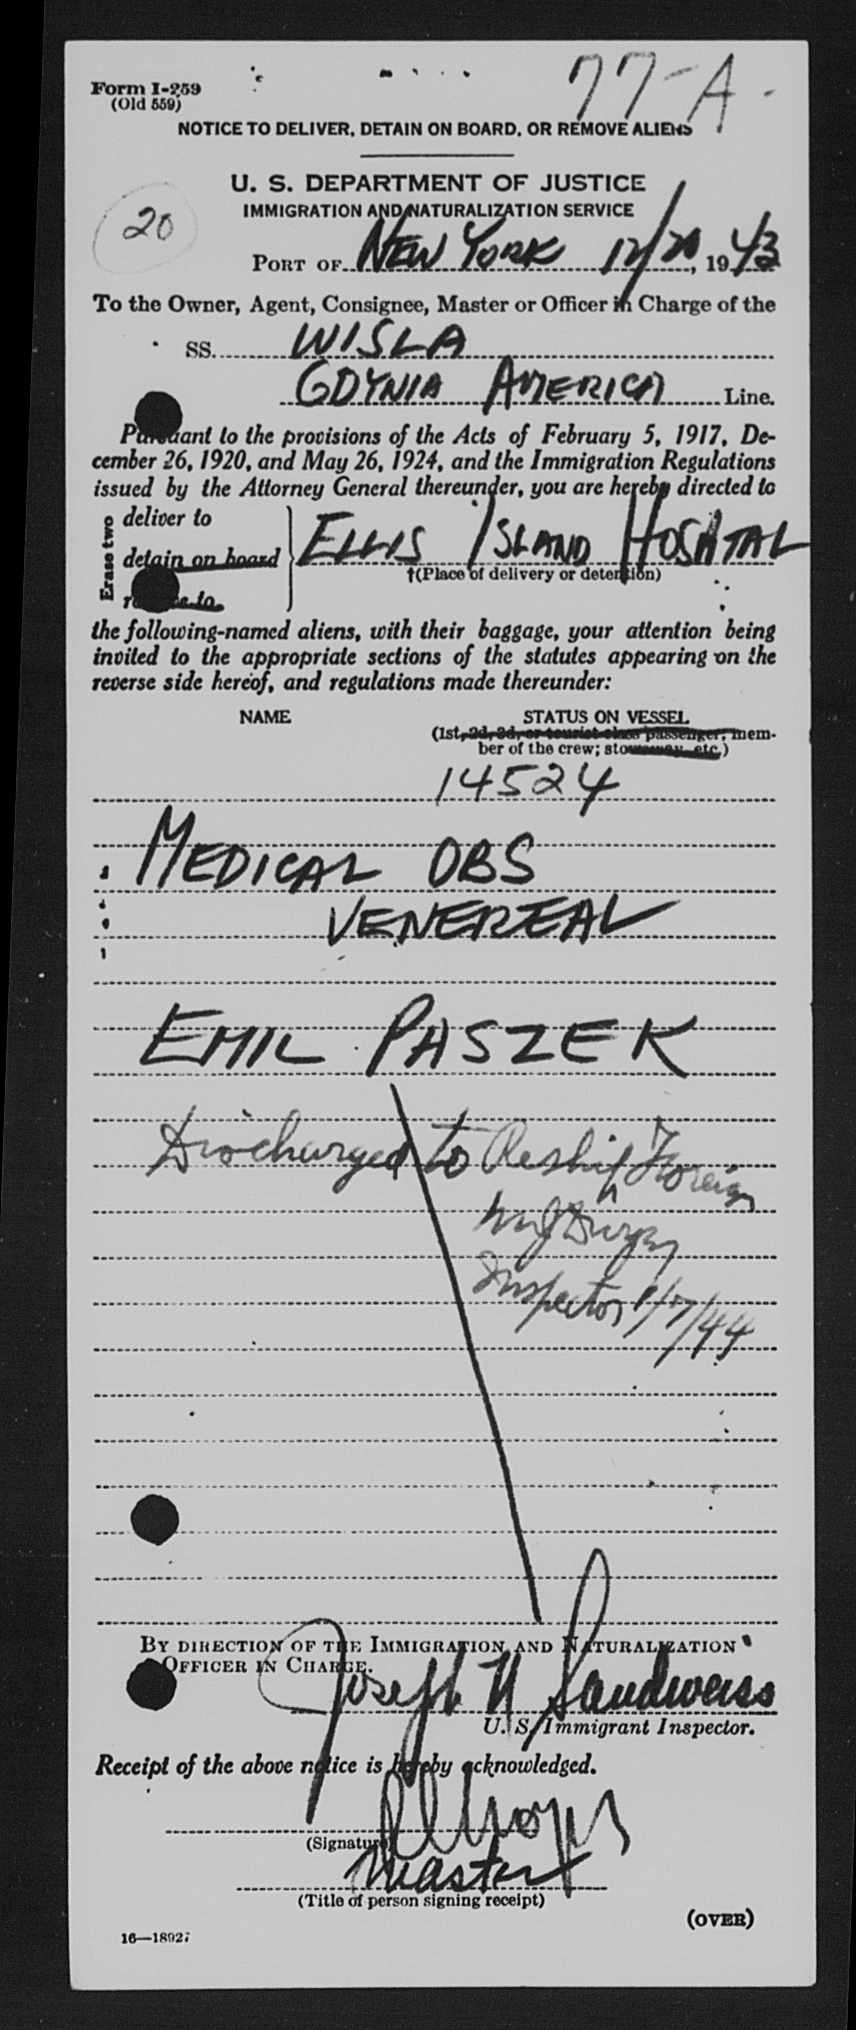 77-A.
Form I-259
(Old 559)
NOTICE TO DELIVER, DETAIN ON BOARD, OR REMOVE ALIENS
U. S. DEPARTMENT OF JUSTICE
IMMIGRATION AND NATURALIZATION SERVICE
20
PORT OF NEW YORK 12/20, 1943
To the Owner, Agent, Consignee, Master or Officer in Charge of the
SS. WISLA
GDYNIA AMERICA Line.
Pursuant to the provisions of the Acts of February 5, 1917, De-
cember 26, 1920, and May 26, 1924, and the Immigration Regulations
issued by the Attorney General thereunder, you are hereby directed to
Erase two
deliver to
detain on board ELLIS ISLAND HOSPITAL
†(Place of delivery or detention)
remove to
the following-named aliens, with their baggage, your attention being
invited to the appropriate sections of the statutes appearing on the
reverse side hereof, and regulations made thereunder:
NAME STATUS ON VESSEL
(1st, 2d, 3d, or tourist class passenger; mem-
ber of the crew; stowaway, etc.)
14524
MEDICAL OBS
VENEREAL
EMIL PASZEK
Discharged to Reship Foreign
Inspector 1/7/44
BY DIRECTION OF THE IMMIGRATION AND NATURALIZATION
OFFICER IN CHARGE.
Joseph N Sandweiss
U. S. Immigrant Inspector.
Receipt of the above notice is hereby acknowledged.
(Signature)
Master
(Title of person signing receipt)
(OVER)
16—18927